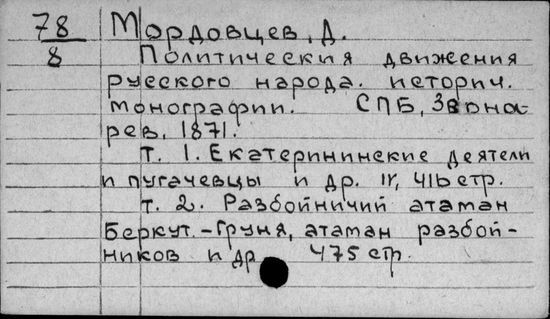 78 Мордовцев, Д.
8 Политическия движения
русского народа. историч.
монографии. СПБ, Звона-
рев, 1871.
т. 1. Екатерининские деятели
и пугачевцы и др. IV, 416 стр.
т. 2. Разбойничий атаман
Беркут. - Груня, атаман разбой-
ников и др 475 стр.